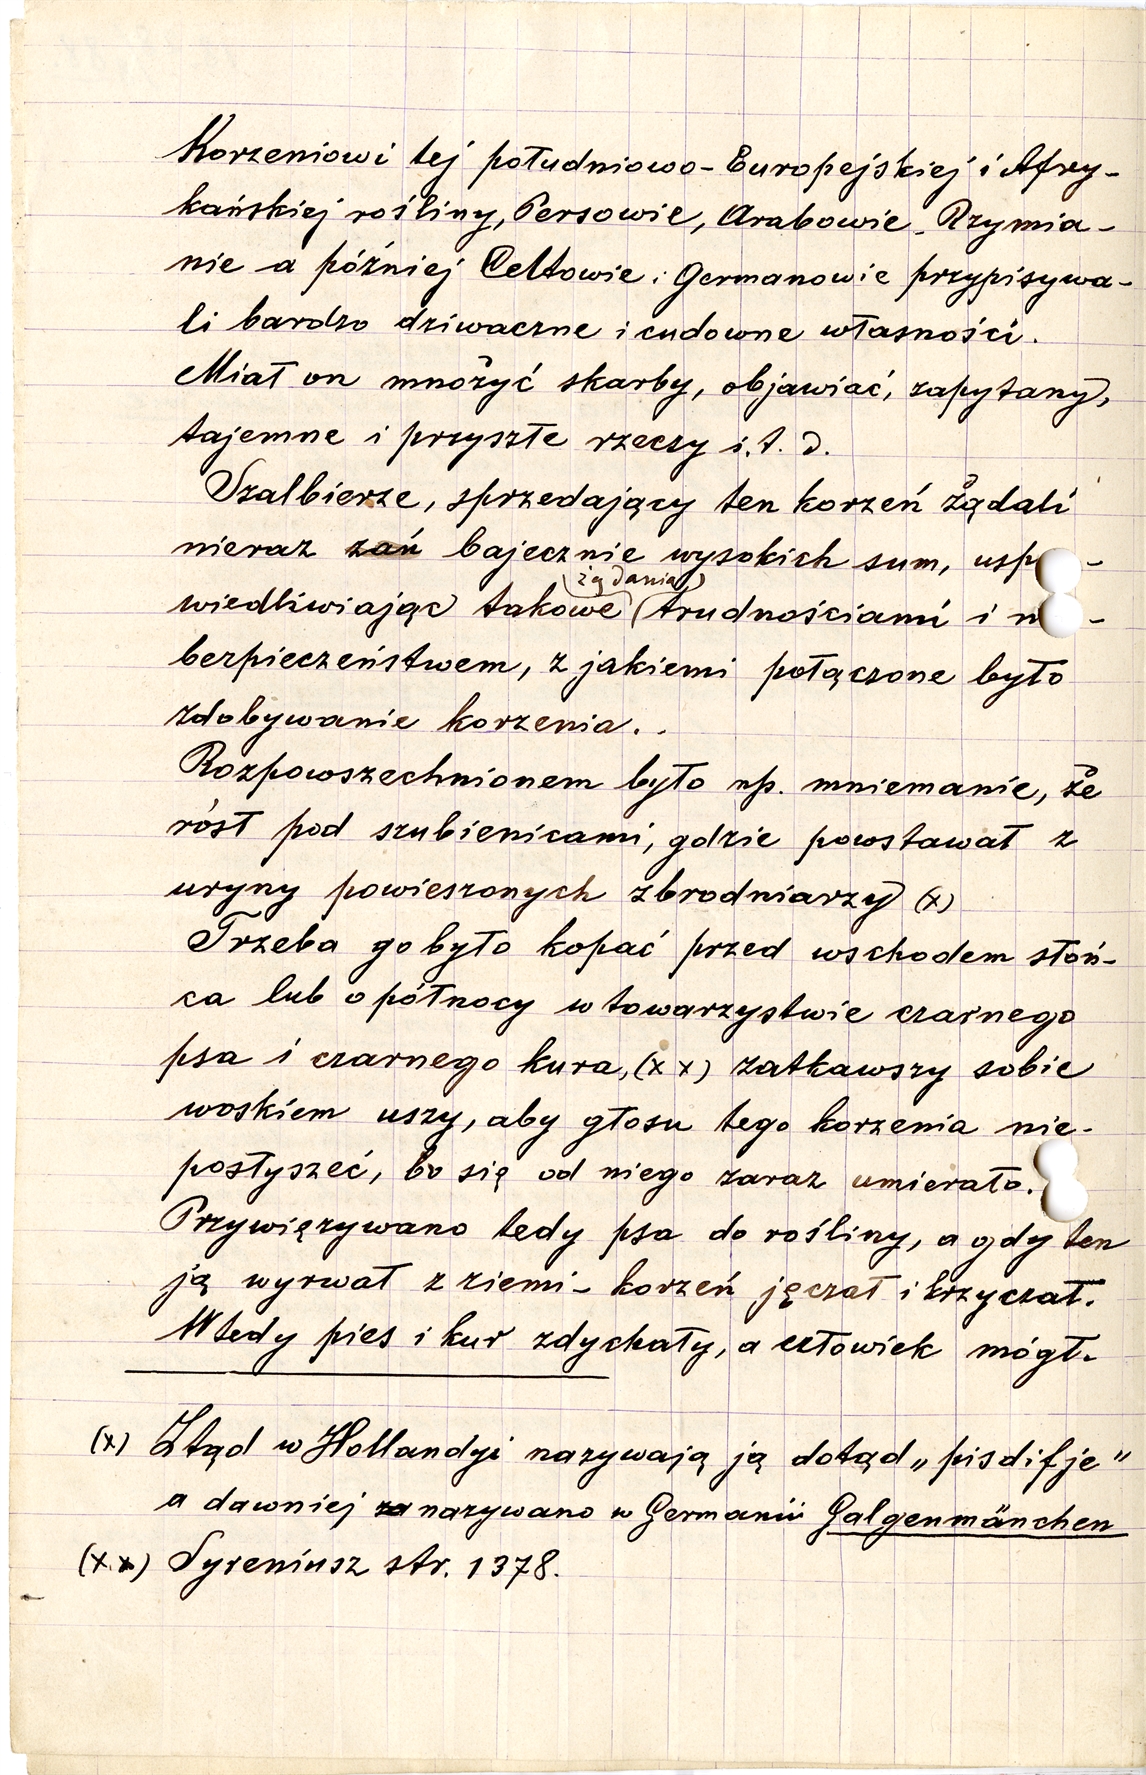 Korzeniowi tej południowo-Europejskiej i Afry-
kańskiej rośliny, Persowie, Arabowie, Rzymia-
nie a później Celtowie i Germanowie przypisywa-
li bardzo dziwaczne i cudowne własności.
Miał on mnożyć skarby, objawiać, zapytany,
tajemne i przyszłe rzeczy i.t.d.
Szalbierze, sprzedający ten korzeń żądali
nieraz zań bajecznie wysokich sum, usp -
(żądania,)
wiedliwiając takowe (trudnościami i n -
bezpieczeństwem, z jakiemi połączone było
zdobywanie korzenia..
Rozpowszechnionem było np. mniemanie, że
rósł pod szubienicami, gdzie powstawał z
uryny powieszonych zbrodniarzy (x)
Trzeba go było kopać przed wschodem słoń-
ca lub o północy w towarzystwie czarnego
psa i czarnego kura, (x x) zatkawszy sobie
woskiem uszy, aby głosu tego korzenia nie-
posłyszeć, bo się od niego zaraz umierało.
Przywięzywano tedy psa do rośliny, a gdy ten
ją wyrwał z ziemi - korzeń jęczał i krzyczał.
Wtedy pies i kur zdychały, a człowiek mógł.
(x) Ztąd w Hollandyi nazywają ją dotąd „pisdifje"
a dawniej za nazywano w Germanii Galgenmänchen
(x x) Syreniusz str. 1378.